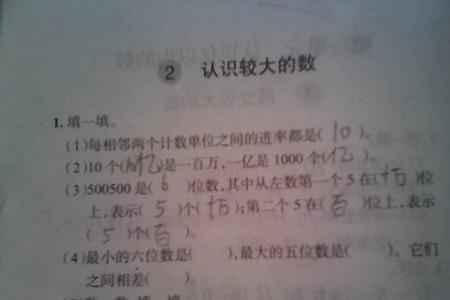 2 认识较大的数
1.填一填。
(1)每相邻两个计数单位之间的进率都是( 10 )。
(2)10个( 亿)是一百万,一亿是1000个(亿)。
(3)500500是( 6 )位数,其中从左数第一个5在(十万)位
上,表示( 5 )个(十万);第二个5在(百)位上,表示
( 5 )个(百)。
(4)最小的六位数是( ),最大的五位数是( )。它们
之间相差( )。